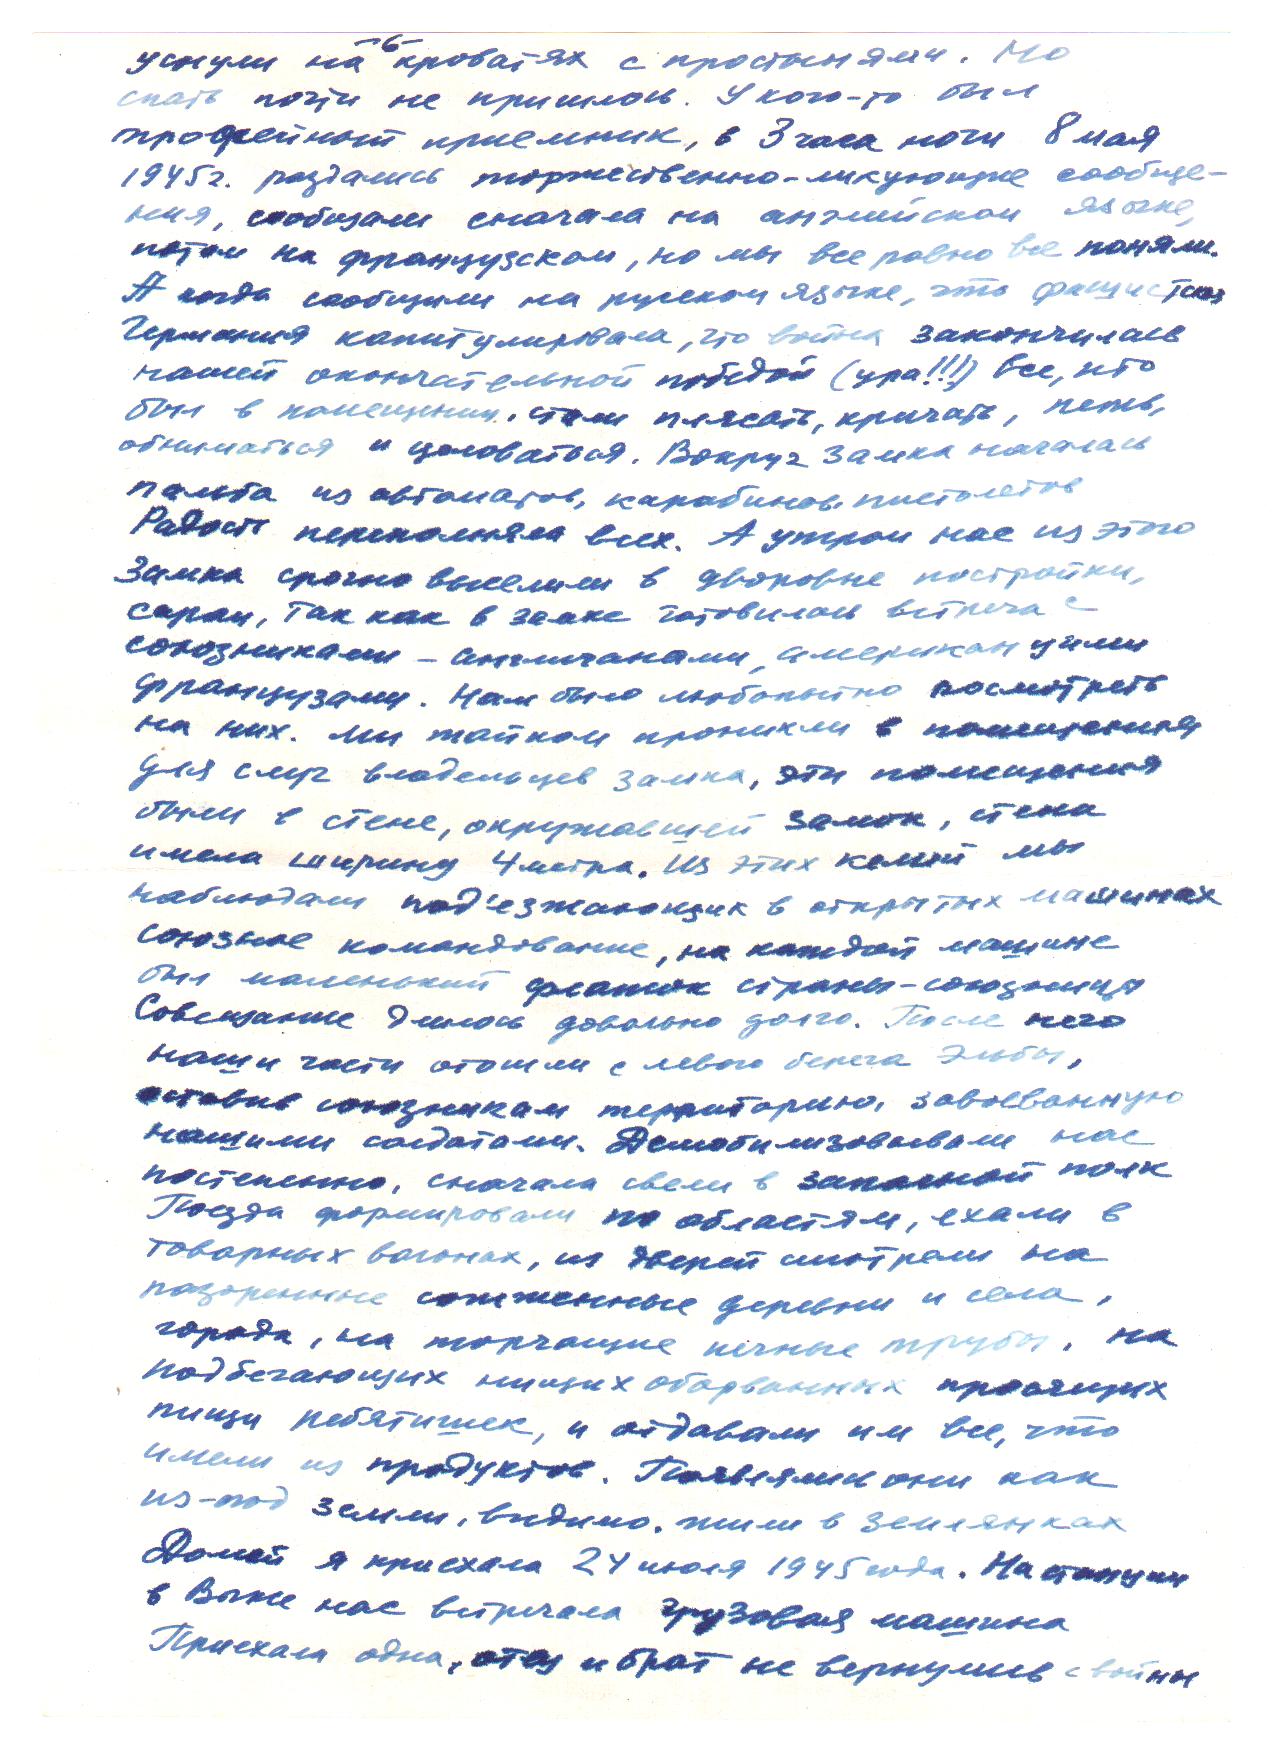 -6-
уснули на кроватях с простынями. Но
спать почти не пришлось. У кого-то был
трофейный приемник, в 3 часа ночи 8 мая
1945г. раздались торжественно-ликующие сообще-
ния, сообщали сначала на английском языке,
потом на французском, но мы все равно все поняли.
А когда сообщили на русском языке, что фашистская
Германия капитулировала, что война закончилась
нашей окончательной победой (ура!!!) Все, кто
был в помещении, стали плясать, кричать, петь,
обниматься и целоваться. Вокруг замка началась
пальба из автоматов, карабинов, пистолетов
Радость переполняла всех. А утром нас из этого
замка срочно выселили в дворовые постройки,
сараи, так как в замке готовилась встреча с
союзниками - англичанами, американцами
французами. Нам было любопытно посмотреть
на них. Мы тайком проникли в помещения
для слуг владельцев замка, эти помещения
были в стене, окружавшей замок, стена
имела ширину 4 метра. Из этих келий мы
наблюдали под'езжающих в открытых машинах
союзное командование, на каждой машине
был маленький флажок страны-союзницы
Совещание длилось довольно долго. После него
наши части отошли с левого берега Эльбы,
оставив союзникам территорию, завоеванную
нашими солдатами. Демобилизовывали нас
постепенно, сначала свели в запасной полк
Поезда формировали по областям, ехали в
товарных вагонах, из дверей смотрели на
разоренные сожженные деревни и села,
города, на торчащие печные трубы, на
подбегающих нищих оборванных просящих
пищи ребятишек, и отдавали им все, что
имели из продуктов. Появлялись они как
из-под земли, видимо, жили в землянках
Домой я приехала 24 июля 1945 года. На станции
в Выже нас встречала грузовая машина
Приехала одна, отец и брат не вернулись с войны